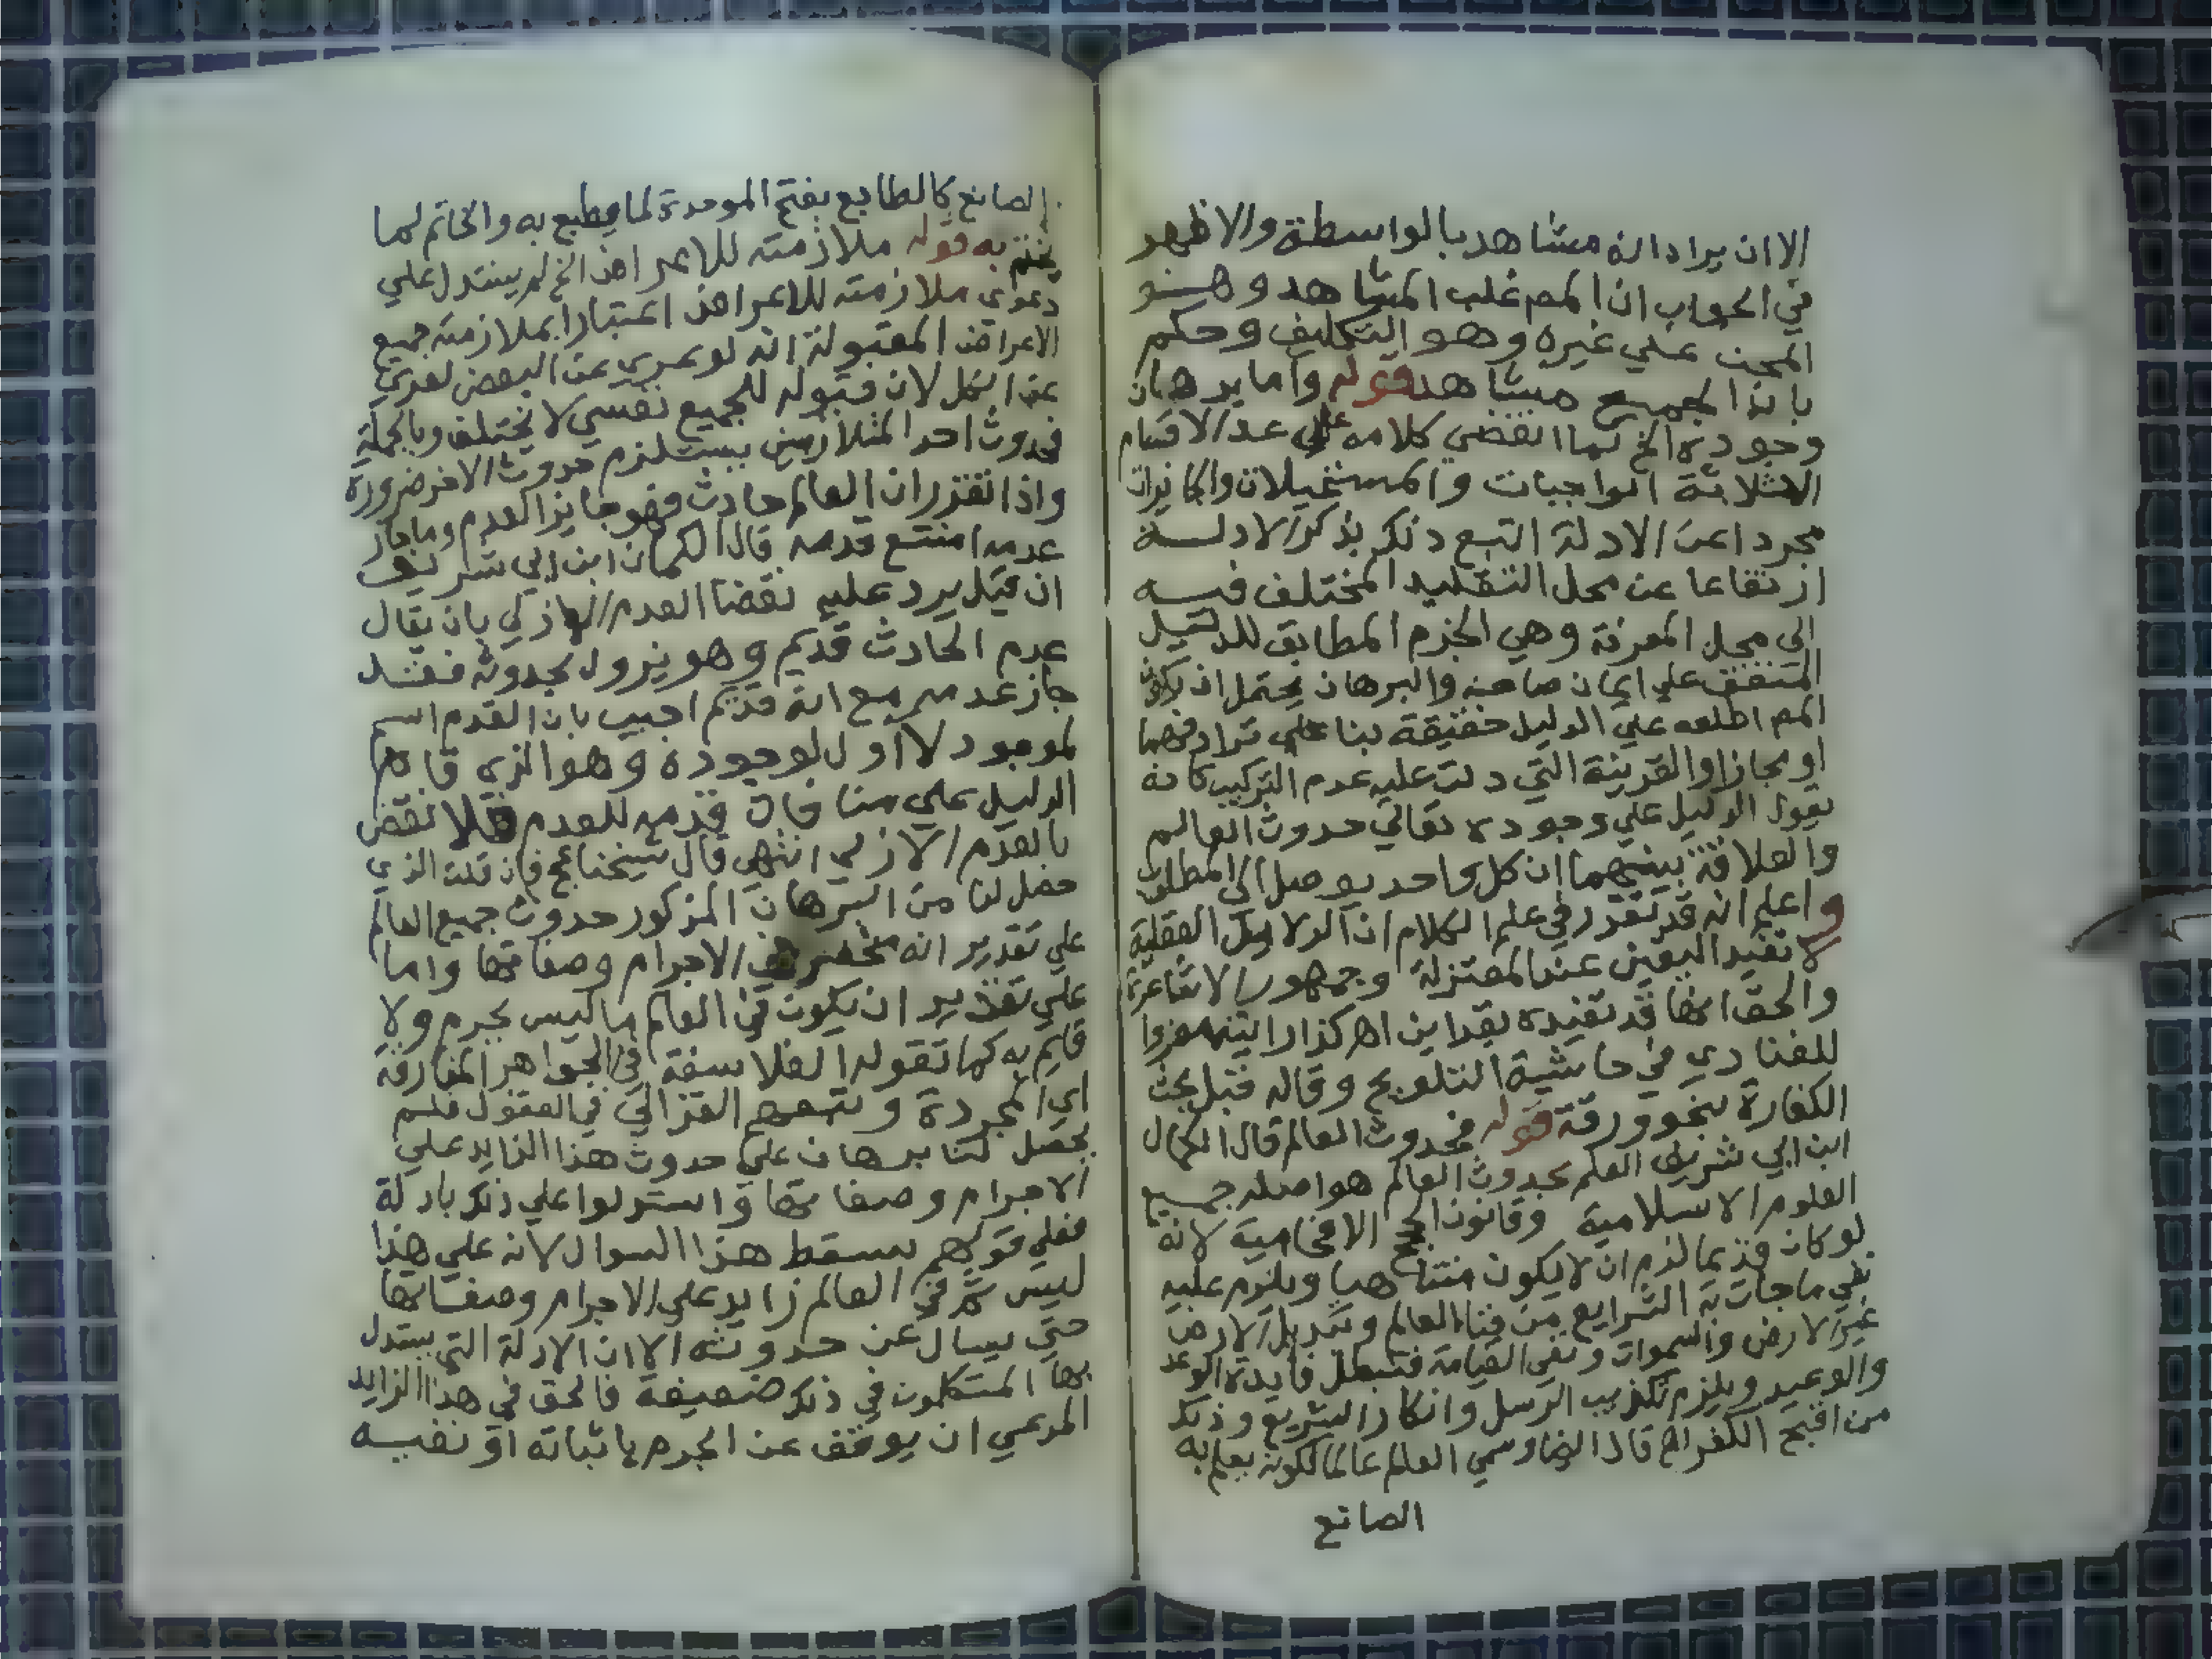 الا ان يراد انه مشاهد بالواسطة والاظهر
في الجواب ان المص غلب المشاهد وهو
المحن علي غيره وهو التكليف وحكم
بان الجميع مشاهد قوله واما برهان
وجوده الخ لما انقضي كلامه علي عد الاقسام
الثلاثة الواجبات والمستحيلات والجايزات
مجردا عن الادلة اتبع ذلك بذكر الادلة
ارتفاعا عن محل التقليد المختلف فيه
الى محل المعرفة وهي الجزم المطابق للدليل
المتفق علي ايمان صاحبه والبرهان يحتمل ان يكون
المص اطلعه علي الدليل حقيقة بنا علي ترادفهما
او مجازا والقرينة التي دلت عليه عدم التركيب كانه
يقول الدليل علي وجوده تعالي حدوث العالم
والعلاقة بينهما ان كل واحد يوصل الي المطلوب
واعلم انه قد تقرر في علم الكلام ان الدلايل العقلية
لا تفيد اليقين عند المعتزلة وجمهور الاشاعرة
والحق انها قد تفيده بقراين اهـ كذا رايته معزوا
للفنادي في حاشية التلويح وقاله قبل بحث
الكفارة بنحو ورقة قوله فحدوث العالم قال الكمال
ابن ابي شريف العلم بحدوث العالم هو اصله جميع
العلوم الاسلامية وقانون الافحامية لانه
لو كان قديما لزم ان لا يكون متناهيا ويلزم عليه
نفي ما جات به الشرايع من فنا العالم وتبديل الارض
غير الارض والسموات ونفي القيامة فتبطل فايدة الوعد
والوعيد ويلزم تكذيب الرسل وانكار الشريع وذلك
من اقبح الكفر اهـ قال وسمي العالم عالما لكونه يعلم به
الصانع
الصانع كالطابع بفتح الموحدة لما يطبع به والخاتم لما
يختم به قوله ملازمته للاعراض الخ لم يستدل علي
دعوي ملازمته للاعراض اعتبارا بملازمته جميع
الاعراض المقبولة انه لو عري عن البعض لعري
عن الكل لان قبوله للجميع نفسي لا يختلف وبالجملة
فحدوث احد المتلازمين يستلزم حدوث الاخر ضرورة
واذا تقرر ان العالم حادث فهو جايز العدم وما جاز
عدمه امتنع قدمه قال الكمال ابن ابي شريف
ان قيل يرد عليه نقضا العدم الازلي بان يقال
عدم الحادث قديم وهو يزول بحدوثه فقد
جاز عدمه مع انه قديم اجيب بان القدم اسم
لموجود لا اول لوجوده وهو الذي قام
الدليل علي منافاة قدمه للعدم فلا نقض
بالعدم الازلي انتهي قال شيخنا عج فان قلت الذي
حصل لنا من البرهان المذكور حدوث جميع العالم
علي تقدير انه منحصر في الاجرام وصفاتها واما
علي تقدير ان يكون في العالم ما ليس بجرم ولا
قايم به كما تقوله الفلاسفة في الجواهر المفارقة
اي المجردة وتبعهم الغزالي في العقول فلم
يحصل لنا برهان علي حدوث هذا الزايد علي
الاجرام وصفاتها واستدلوا علي ذلك بادلة
فعلي قولهم يسقط هذا السوال لانه علي هذا
ليس ثم في العالم زايد علي الاجرام وصفاتها
حتي يسال عن حدوثه الا ان الادلة التي يستدل
بها المتكلمون في ذلك ضعيفة فالحق في هذا الزايد
المدعي ان يوقف عن الجزم باثباته او نفيه